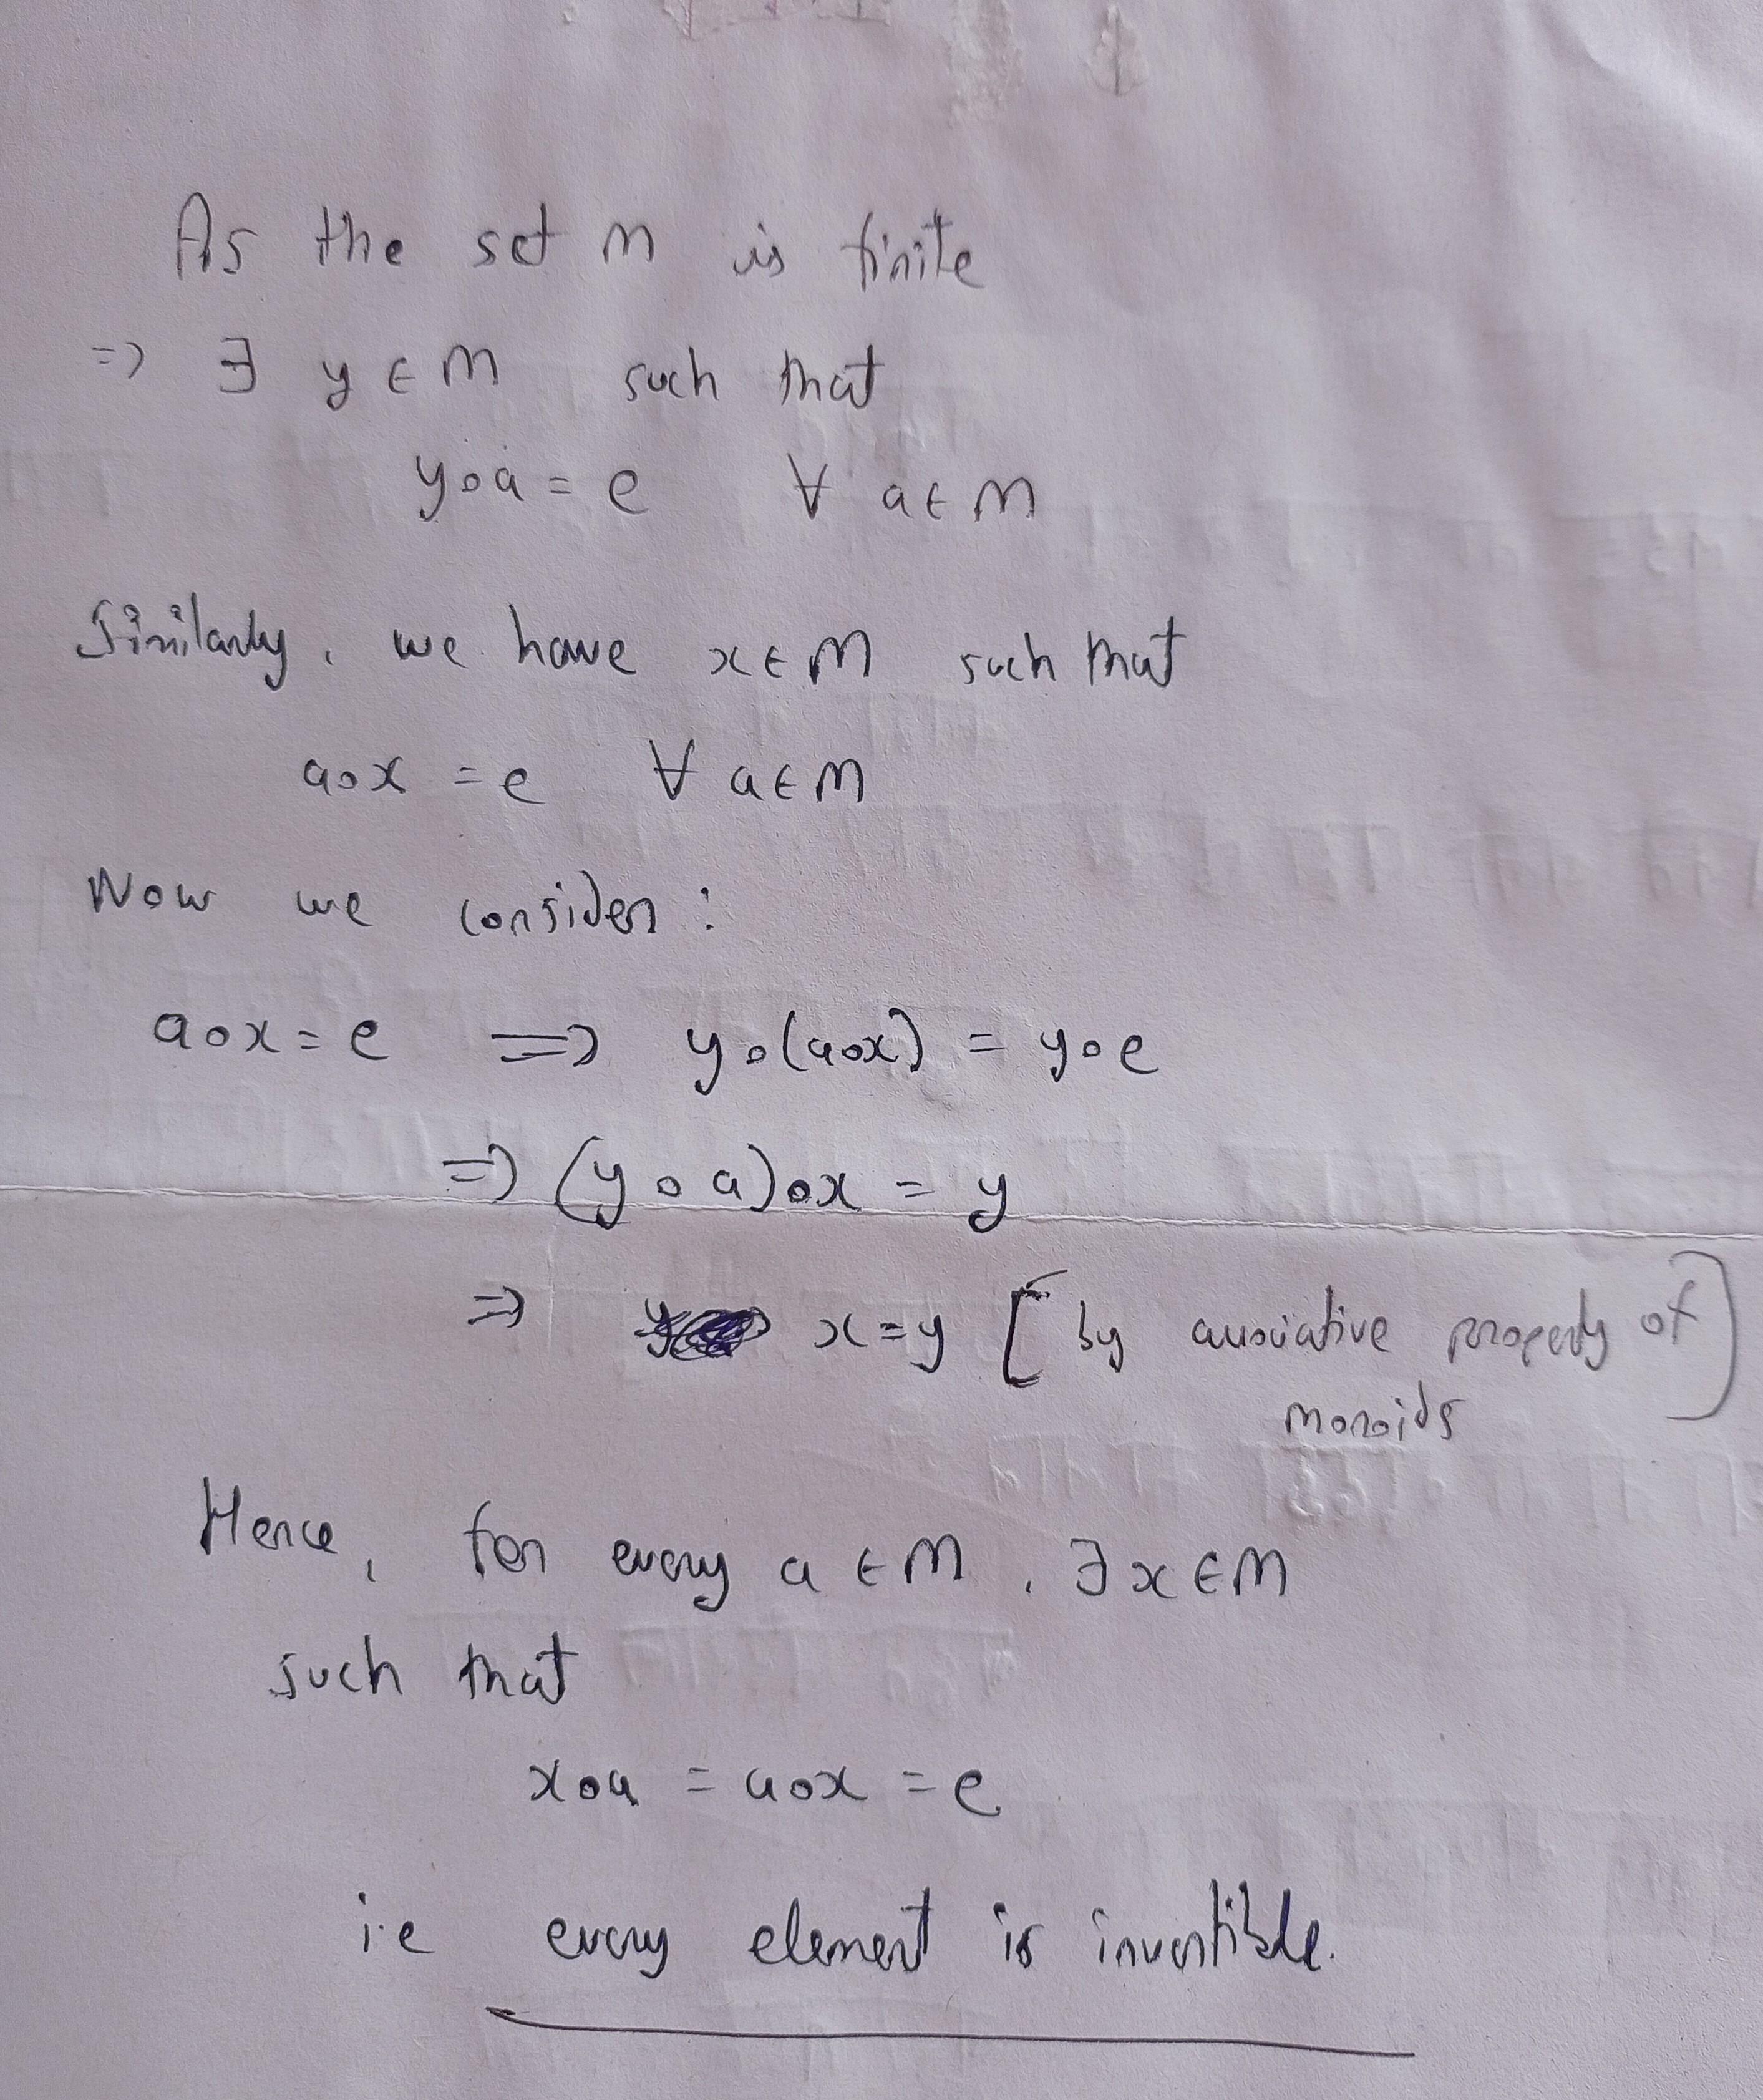 As the set M is finite
=> ∃ y ∈ M such that
y∘a = e ∀ a ∈ M
Similarly, we have x ∈ M such that
a∘x = e ∀ a ∈ M
Now we consider :
a∘x = e => y∘(a∘x) = y∘e
=> (y∘a)∘x = y
=> x = y [by associative property of
monoids]
Hence, for every a ∈ M, ∃ x ∈ M
such that
x∘a = a∘x = e
i.e every element is invertible.